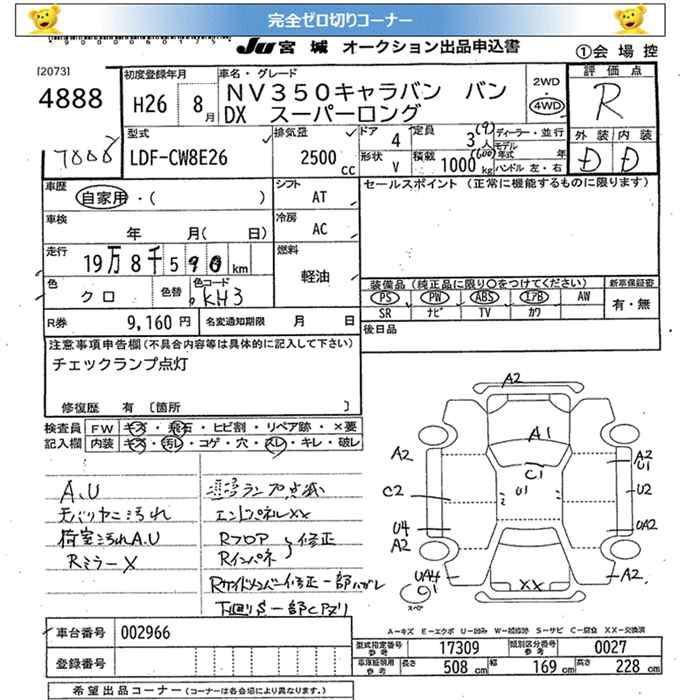 完全ゼロ切りコーナー
JU 宮城 オークション出品申込書
①会場控
[2073]
4888
初度登録年月
H26 8月
車名・グレード
NV350キャラバン バン
DX スーパーロング
2WD
・
4WD
評価点
R
外装 内装
D D
型式
LDF-CW8E26
排気量
2500 cc
ドア 4
定員 3(9)人
ディーラー・並行
モデル年式 年
形状 V
積載 1000(600)kg
ハンドル 左・右
車歴
自家用・( )
シフト
AT
セールスポイント (正常に機能するものに限ります)
車検
年 月(日)
冷房
AC
走行
19万8千590km
燃料
軽油
色
クロ
色替
色コード
KH3
装備品 (純正品に限り○をつけてください)
新車保証書
PS PW ABS エアB AW
SR ナビ TV カワ
有・無
R券 9,160円
名変通知期限 月 日
後日品
注意事項申告欄(不具合内容等は具体的に記入して下さい)
チェックランプ点灯
修復歴 有 〔箇所 〕
検査員 FW キズ・飛石・ヒビ割・リペア跡・×要
記入欄 内装 キズ・汚レ・コゲ・穴・スレ・キレ・破レ
A.U
荷室汚れA.U
Rミラー×
エンドパネルXX
Rフロア
Rインパネ
修正
A2
A1
C1
U1
A2
C2
U4
A2
UA4
C1
スペア
A2
U1
U2
UA2
A2
XX
A-キズ E-エクボ U-凹み W-補修跡 S-サビ C-腐食 XX-交換済
車台番号 002966
登録番号
型式指定番号 参考 17309
類別区分番号 参考 0027
車庫証明用 参考 長さ 508cm 幅 169cm 高さ 228cm
希望出品コーナー (コーナーは各会場により異なります。)